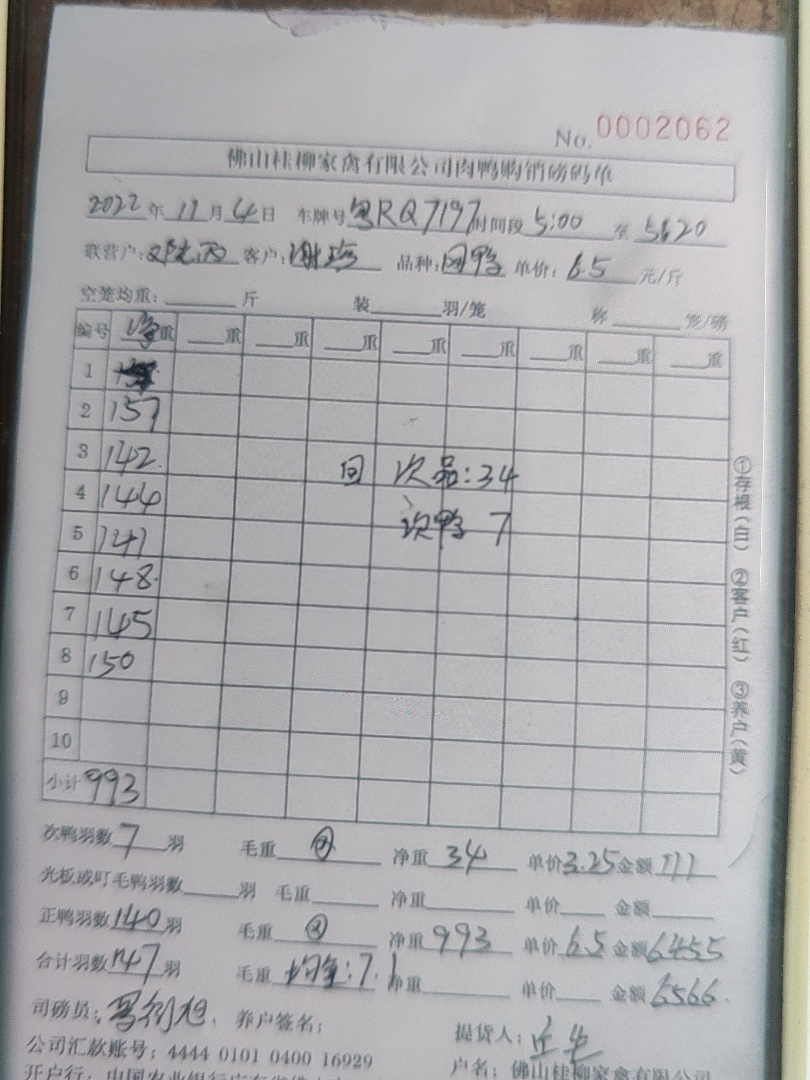 No. 0002062
佛山桂柳家禽有限公司肉鸭购销磅码单
2022年 11月 4日 车牌号 粤RQ7197 时间段 5:00 至 5:20
联营户: 客户: 谢 品种: 单价: 6.5 元/斤
空笼均重: 斤 装 羽/笼 称 笼/磅
编号 净重 重 重 重 重 重 重 重 重
1
2 157
3 142 回 次品:34
4 144 次鸭 7
5 141
6 148
7 145
8 150
9
10
小计 993
①存根(白) ②客户(红) ③养户(黄)
次鸭羽数 7 羽 毛重 净重 34 单价 3.25 金额 111
光板或叮毛鸭羽数 羽 毛重 净重 单价 金额
正鸭羽数 140 羽 毛重 净重 993 单价 6.5 金额 6455
合计羽数 147 羽 毛重 均重:7.1 净重 单价 金额 6566
司磅员: 养户签名: 提货人:
公司汇款账号: 4444 0101 0400 16929 户名: 佛山桂柳家禽有限公司
开户行: 中国农业银行